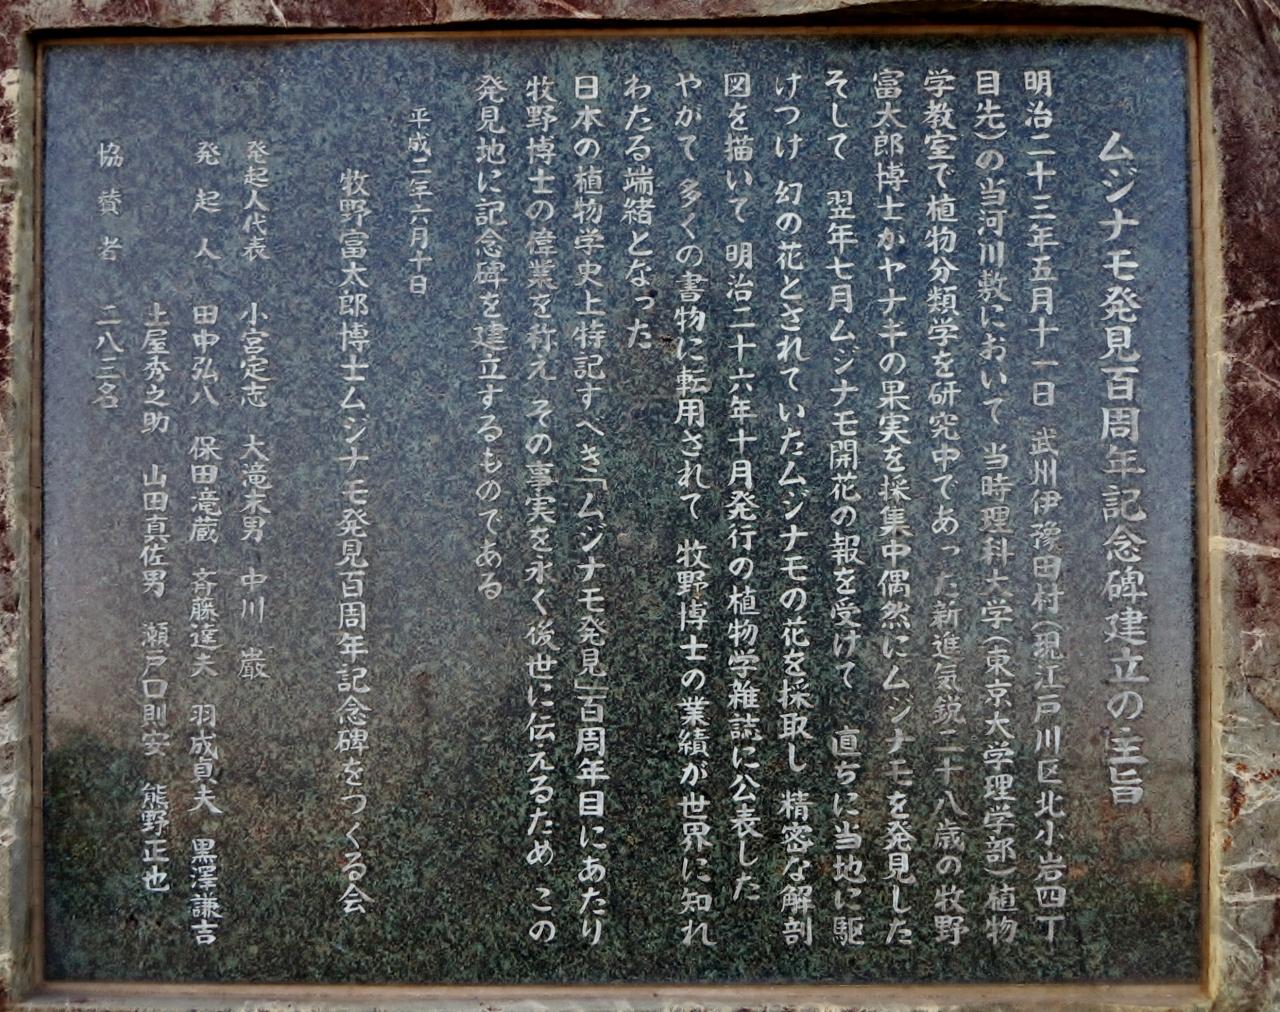 ムジナモ発見百周年記念碑建立の主旨
明治二十三年五月十一日 武州伊豫田村(現江戸川区北小岩四丁
目先)の当河川敷において 当時理科大学(東京大学理学部)植物
学教室で植物分類学を研究中であった新進気鋭二十八歳の牧野
富太郎博士がヤナギの果実を採集中偶然にムジナモを発見した
そして 翌年七月ムジナモ開花の報を受けて 直ちに当地に駆
けつけ 幻の花とされていたムジナモの花を採取し 精密な解剖
図を描いて 明治二十六年十月発行の植物学雑誌に公表した
やがて 多くの書物に転用されて 牧野博士の業績が世界に知れ
わたる端緒となった
日本の植物学史上特記すべき「ムジナモ発見」百周年目にあたり
牧野博士の偉業を称え その事実を永く後世に伝えるため この
発見地に記念碑を建立するものである
平成二年六月十日
牧野富太郎博士ムジナモ発見百周年記念碑をつくる会
発起人代表 小宮定志 大滝末男 中川 巌
発起人 田中弘八 保田滝蔵 斉藤達夫 羽成貞夫 黒澤謙吉
土屋秀之助 山田真佐男 瀬戸口則安 熊野正也
協賛者 二八三名